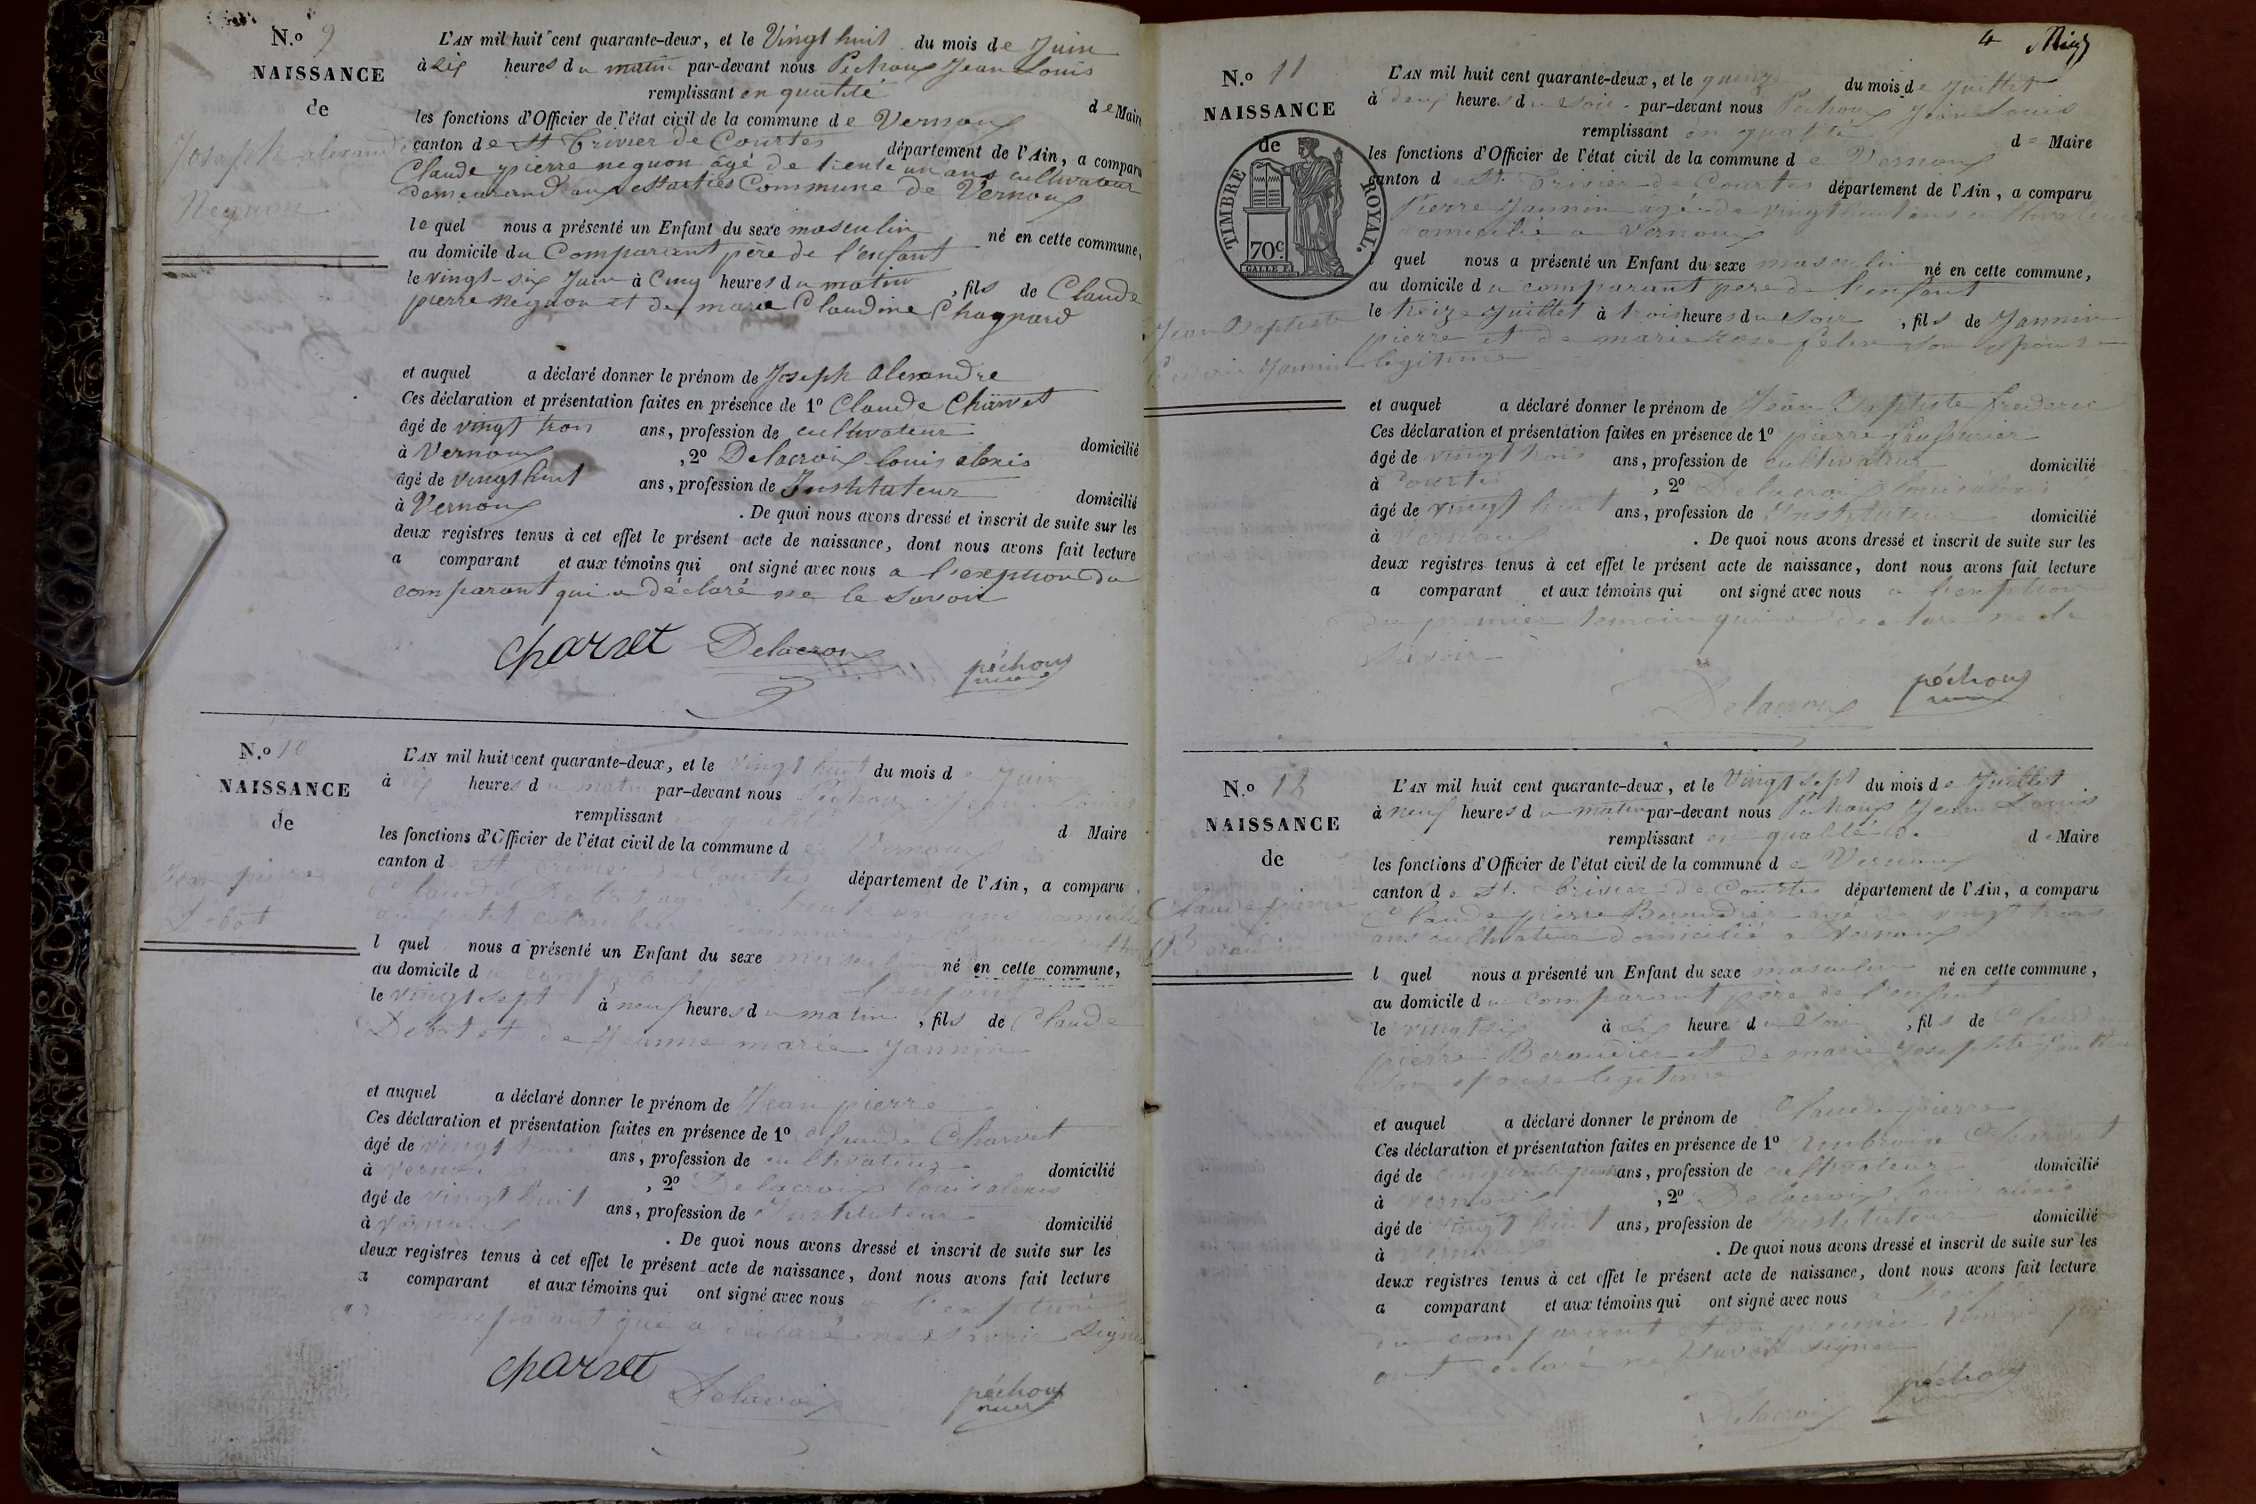 N.º 9
NAISSANCE
de
Joseph alexandre
Neguon
L'AN mil huit cent quarante-deux, et le Vingt huit du mois de Juin
à six heures du matin par-devant nous Péchoux Jean Louis
remplissant en qualité de Maire
les fonctions d'Officier de l'état civil de la commune de Vernoux
canton de St Trivier de Courtes département de l'Ain, a comparu
Claude pierre neguon âgé de trente un ans cultivateur
demeurant aux Commune de Vernoux
lequel nous a présenté un Enfant du sexe masculin né en cette commune,
au domicile du Comparant père de l'enfant
le vingt-six Juin à Cinq heures du matin, fils de Claude
pierre neguon et de marie Claudine Chagnard
et auquel a déclaré donner le prénom de Joseph alexandre
Ces déclaration et présentation faites en présence de 1º Claude Charvet
âgé de vingt trois ans, profession de cultivateur domicilié
à Vernoux, 2º Delacroix louis alexis
âgé de vingt huit ans, profession de Instituteur domicilié
à Vernoux. De quoi nous avons dressé et inscrit de suite sur les
deux registres tenus à cet effet le présent acte de naissance, dont nous avons fait lecture
a comparant et aux témoins qui ont signé avec nous a l'exption du
comparant qui a déclaré ne le savoir
charvet Delacroix péchoux
maire
N.º 10
NAISSANCE
de
Jean pierre
Debôt
L'AN mil huit cent quarante-deux, et le vingt huit du mois de Juin
à six heures du matin par-devant nous Péchoux Jean Louis
remplissant en qualité d Maire
les fonctions d'Officier de l'état civil de la commune de Vernoux
canton de St Trivier de Courtes département de l'Ain, a comparu
Claude Debot agé de trente un ans domicilié
l quel nous a présenté un Enfant du sexe masculin né en cette commune,
au domicile du comparant père de l'enfant
le vingt sept à neuf heures du matin, fils de Claude
Debot et de Jeanne marie Jannin
et auquel a déclaré donner le prénom de Jean pierre
Ces déclaration et présentation faites en présence de 1º Claude Charvet
âgé de vingt trois ans, profession de cultivateur domicilié
à Vernoux, 2º Delacroix louis alexis
âgé de vingt huit ans, profession de Instituteur domicilié
à Vernoux. De quoi nous avons dressé et inscrit de suite sur les
deux registres tenus à cet effet le présent acte de naissance, dont nous avons fait lecture
a comparant et aux témoins qui ont signé avec nous a l'exption
du comparant qui a déclaré ne savoir signer
charvet Delacroix péchoux
maire
4
N.º 11
NAISSANCE
de
TIMBRE ROYAL.
70c
Jean Baptiste
frederic Jannin
L'AN mil huit cent quarante-deux, et le quinze du mois de Juillet
à deux heures du soir par-devant nous Péchoux Jean Louis
remplissant en qualité de Maire
les fonctions d'Officier de l'état civil de la commune de Vernoux
canton de St. Trivier de Courtes département de l'Ain, a comparu
Pierre Jannin agé de vingt huit ans cultivateur
domicilié a Vernoux
l quel nous a présenté un Enfant du sexe masculin né en cette commune,
au domicile du comparant père de l'enfant
le treize Juillet à trois heures du soir, fils de Jannin
pierre et de marie rose son épouse
légitime
et auquel a déclaré donner le prénom de Jean Baptiste frederic
Ces déclaration et présentation faites en présence de 1º pierre
âgé de vingt trois ans, profession de cultivateur domicilié
à Courtes, 2º Delacroix louis alexis
âgé de vingt huit ans, profession de Instituteur domicilié
à Vernoux. De quoi nous avons dressé et inscrit de suite sur les
deux registres tenus à cet effet le présent acte de naissance, dont nous avons fait lecture
a comparant et aux témoins qui ont signé avec nous a l'exption
du premier temoin qui a declaré ne le
savoir
Delacroix péchoux
N.º 12
NAISSANCE
de
Claude pierre
L'AN mil huit cent quarante-deux, et le Vingt sept du mois de Juillet
à neuf heures du matin par-devant nous Péchoux Jean Louis
remplissant en qualité de Maire
les fonctions d'Officier de l'état civil de la commune de Vernoux
canton de St. Trivier de Courtes département de l'Ain, a comparu
Claude pierre Beraudier agé de vingt trois
ans cultivateur domicilié a Vernoux
l quel nous a présenté un Enfant du sexe masculin né en cette commune,
au domicile du comparant père de l'enfant
le vingt six à six heures du soir, fils de Claude
pierre Beraudier et de marie Josephte
son épouse légitime
et auquel a déclaré donner le prénom de Claude pierre
Ces déclaration et présentation faites en présence de 1º
âgé de cinquante ans, profession de cultivateur domicilié
à Vernoux, 2º Delacroix louis alexis
âgé de vingt huit ans, profession de Instituteur domicilié
à Vernoux. De quoi nous avons dressé et inscrit de suite sur les
deux registres tenus à cet effet le présent acte de naissance, dont nous avons fait lecture
a comparant et aux témoins qui ont signé avec nous
du comparant et du premier témoin qui
ont déclaré ne savoir signer
Delacroix péchoux